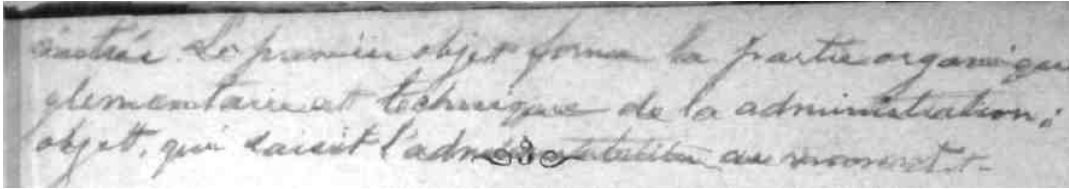 nistrés. Le premier objet forme la partie organique
élémentaire et technique de la administration;
objet, qui saisit l'administration au moment